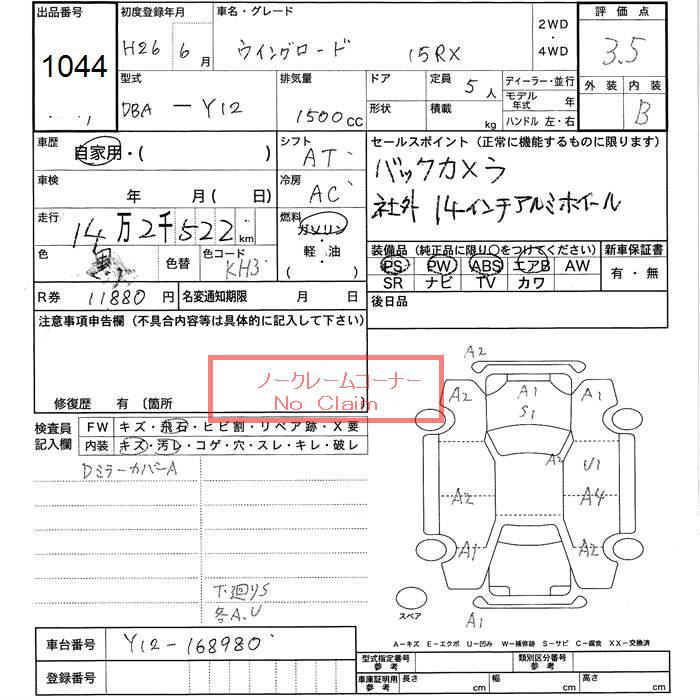 出品番号 初度登録年月 車名・グレード 評価点
1044 H26 6月 ウイングロード 15RX 2WD・4WD 3.5
型式 排気量 ドア 定員 5人 ディーラー・並行 外装 内装
DBA-Y12 1500cc 形状 積載 kg モデル年式 年 B
ハンドル 左・右
車歴 自家用・( ) シフト AT セールスポイント(正常に機能するものに限ります)
車検 年 月( 日) 冷房 AC バックカメラ
走行 14万2千522km 燃料 ガソリン・軽・油( ) 社外 14インチアルミホイール
色 黒 色替 色コード KH3 装備品(純正品に限り○をつけてください) 新車保証書
PS PW ABS エアB AW 有・無
R券 11880円 名変通知期限 月 日 SR ナビ TV カワ
後日品
注意事項申告欄(不具合内容等は具体的に記入して下さい)
ノークレームコーナー
No Claim
修復歴 有〔箇所 〕
検査員記入欄 FW キズ・飛石・ヒビ割・リペア跡・X要
内装 キズ・汚レ・コゲ・穴・スレ・キレ・破レ
DミラーカバーA
下廻りS
各A.U
A2
A2 A1 A1
S1
A2 U1
A2 A4
A1 A2
スペア A1
A-キズ E-エクボ U-凹み W-補修跡 S-サビ C-腐食 XX-交換済
車台番号 Y12-168980
登録番号
型式指定番号 参考 類別区分番号 参考
車庫証明用 参考 長さ cm 幅 cm 高さ cm